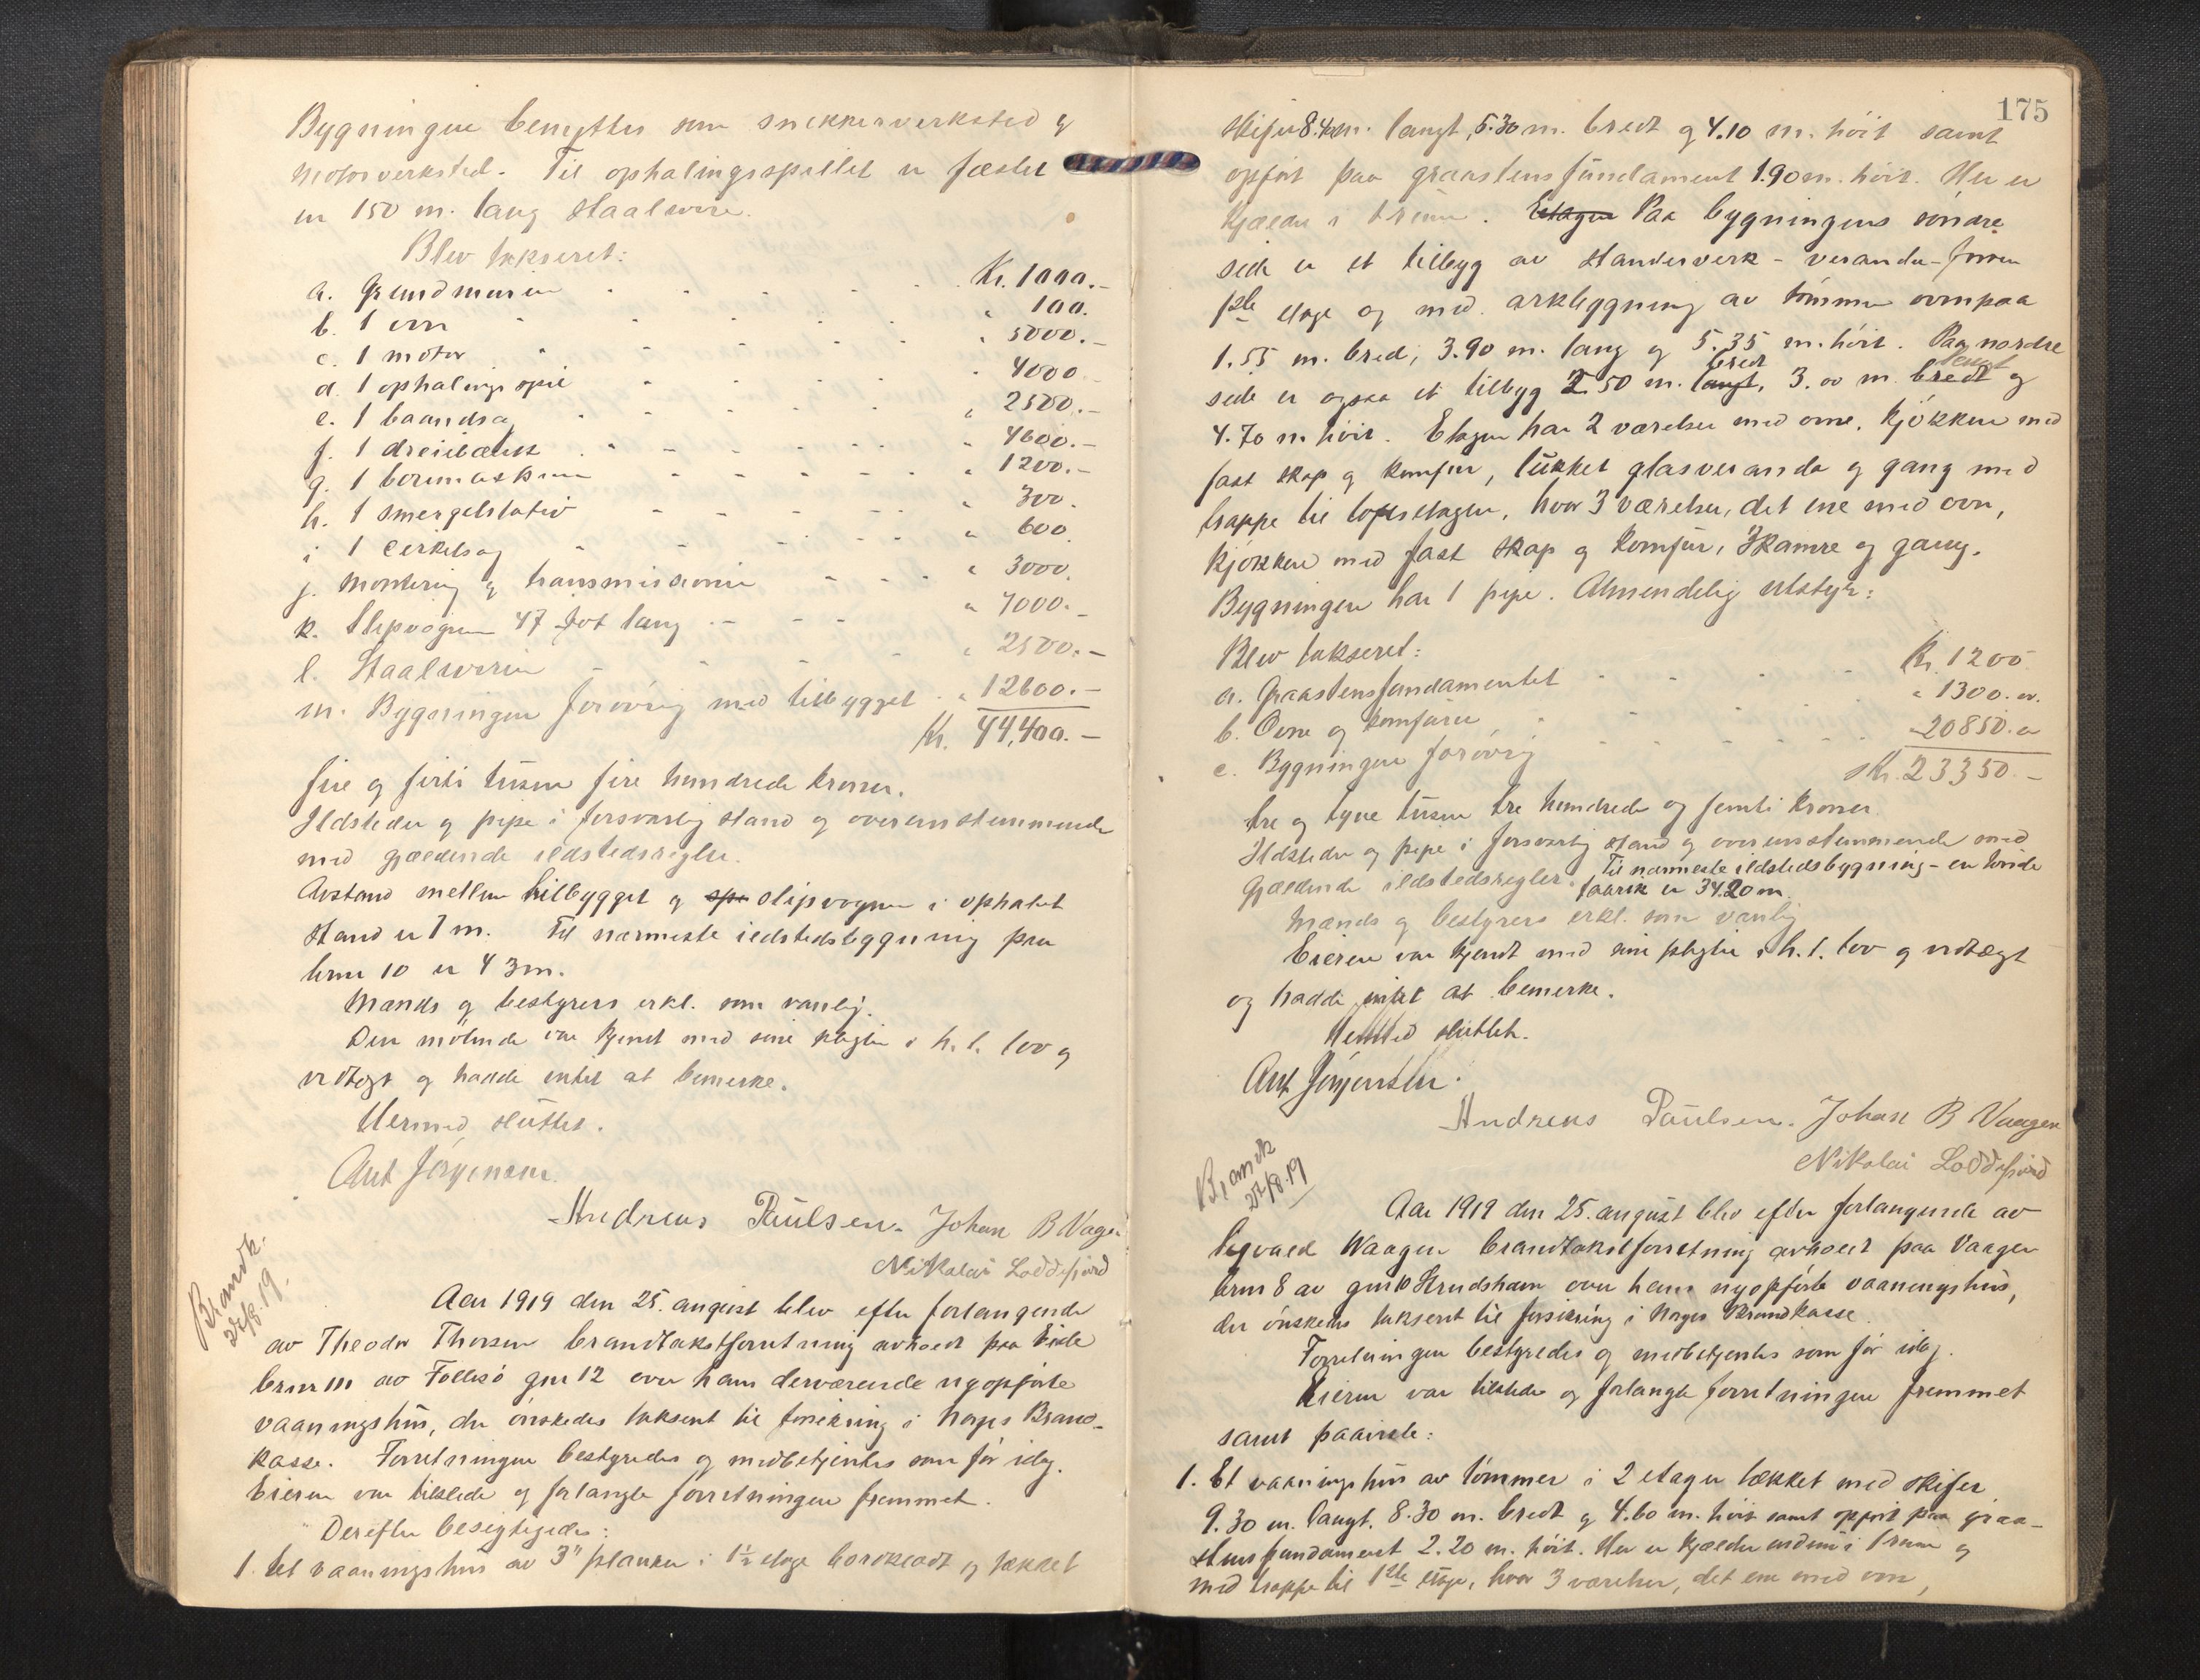 Bygningen benyttes som snekkerverksted og
motorverksted. Til ophalingsspillet er fæstet
en 150 m. lang staalwire.
Blev takseret:
a. Grundmuren Kr. 1000.-
b. 1 ovn " 100.
c. 1 motor " 5000.-
d. 1 ophalingsspil " 4000
e. 1 baandsag " 2500.-
f. 1 dreiebænk " 4600.-
g. 1 boremaskin " 1200.-
h. 1 smergelstativ " 300.
i 1 cirkelsag " 600.
j. Montering og transmissioner " 3000.
k. Slipvognen 47 fot lang " 7000.-
l. Staalwiren " 2500.-
m. Bygningen forøvrig med tilbygget " 12600.-
Kr. 44,400.-
fire og firti tusen fire hundrede kroner.
Ildsteder og pipe i forsvarlig stand og overensstemmende
med gjældende ildstedsregler.
Avstand mellem tilbygget og slipvognen i ophalet
stand er 7 m. Til nærmeste ildstedsbygning paa
brnr 10 er 43m.
Mænds og bestyrers erkl. som vanlig.
Den møtende var kjendt med sine pligter i h. t. lov og
vedtægt og hadde intet at bemerke.
Hermed sluttet.
Ant Jørgensen.
Andreas Paulsen. Johan B Vaagen
Nikolai Loddefjord
Brandk.
27/8.19.
Aar 1919 den 25. august blev efter forlangende
av Theodor Thorsen brandtakstforretning avholdt paa Eide
brnr 111 av Follesø gnr 12 over hans derværende nyopførte
vaaningshus, der ønskedes taksert til forsikring i Norges Brand-
kasse. Forretningen bestyredes og medbetjentes som før idag.
Eieren var tilstede og forlangte forretningen fremmet.
Derefter besigtigedes:
1. Et vaaningshus av 3" planker i 1½ etage bordklædt og tækket
175
skifer 8.40m. langt, 5.30 m. bredt og 4.10 m. høit samt
opført paa graastensfundament 1.90 m. høit. Her er
kjælder i 2 rum. Etagen Paa bygningens søndre
side er et tilbyg av standerverk - veranda-form
1ste etage og med arkbygning av tømmer ovenpaa
1.55 m. bred, 3.90 m. lang og 5.35 m. høit. Paa nordre
side er ogsaa et tilbyg 2.50 m. langt bredt, 3.00 m. bredt langt og
4.70 m høit. Etagen har 2 værelser med ovne, kjøkken med
fast skap og komfur, lukket glasveranda og gang med
trappe til loftsetagen, hvor 3 værelser, det ene med ovn,
kjøkken med fast skap og komfur, 3 kamre og gang.
Bygningen har 1 pipe. Almendelig utstyr:
Blev takseret:
a. Graastensfundamentet Kr. 1200
b. Ovne og komfurer " 1300.00.
c. Bygningen forøvrig " 20850.00
Kr. 23350.-
tre og tyve tusen tre hundrede og femti kroner.
Ildsteder og pipe i forsvarlig stand og overensstemmende med
gjældende ildstedsregler. Til nærmeste ildstedsbygning - en
er 34.20 m.
Mænds og bestyrers erkl. som vanlig
Eieren var kjendt med sine pligter i h. t. lov og vedtægt
og hadde intet at bemerke.
Hermed sluttet.
Ant Jørgensen.
Andreas Paulsen. Johan B Vaagen
Nikolai Loddefjord
Brandk
27/8.19
Aar 1919 den 25. august blev efter forlangende av
Sigvald Waagen brandtakstforretning avholdt paa Vaagen
brnr 8 av gnr 10 Strudshavn over hans nyopførte vaaningshus,
der ønskedes taksert til forsikring i Norges Brandkasse.
Forretningen bestyredes og medbetjentes som før idag.
Eieren var tilstede og forlangte forretningen fremmet
samt paaviste:
1. Et vaaningshus av tømmer i 2 etager tækket med skifer
9.30 m. langt, 8.30 m. bredt og 4.60 m. høit samt opført paa graa-
stensfundament 2.20 m. høit. Her er kjælder i 1 rum og
med trappe til 1ste etage, hvor 3 værelser, det ene med ovn,